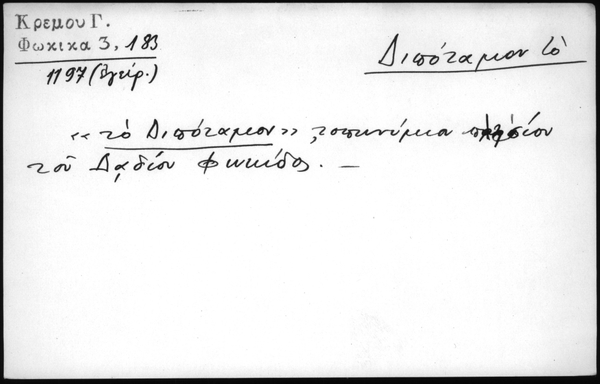 Κρεμου Γ.
Φωκικα 3, 183
1197 (Ἔγειρ.)
Διπόταμον τὸ
«τὸ Διπόταμον» τοπωνύμια πλησίον
τοῦ Δαδίου Φωκίδος. —